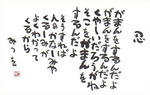 忍
がまんをするんだよ
がまんをするんだよ
くやしいだろうがね
そこをがまんを
するんだよ
そうすれば
人のかなしみや
くるしみが
よくわかって
くるから
みつを